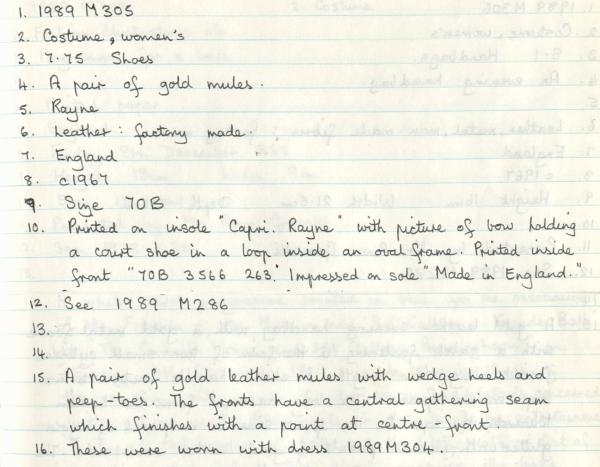 1. 1989 M305
2. Costume, women's
3. 7.75 Shoes
4. A pair of gold mules.
5. Rayne
6. Leather: factory made.
7. England
8. c1967
9. Size 70B
10. Printed on insole "Capri. Rayne" with picture of bow holding
a court shoe in a loop inside an oval frame. Printed inside
front "70B 3566 263." Impressed on sole "Made in England."
12. See 1989 M286
13.
14.
15. A pair of gold leather mules with wedge heels and
peep-toes. The fronts have a central gathering seam
which finishes with a point at centre-front.
16. These were worn with dress 1989M304.